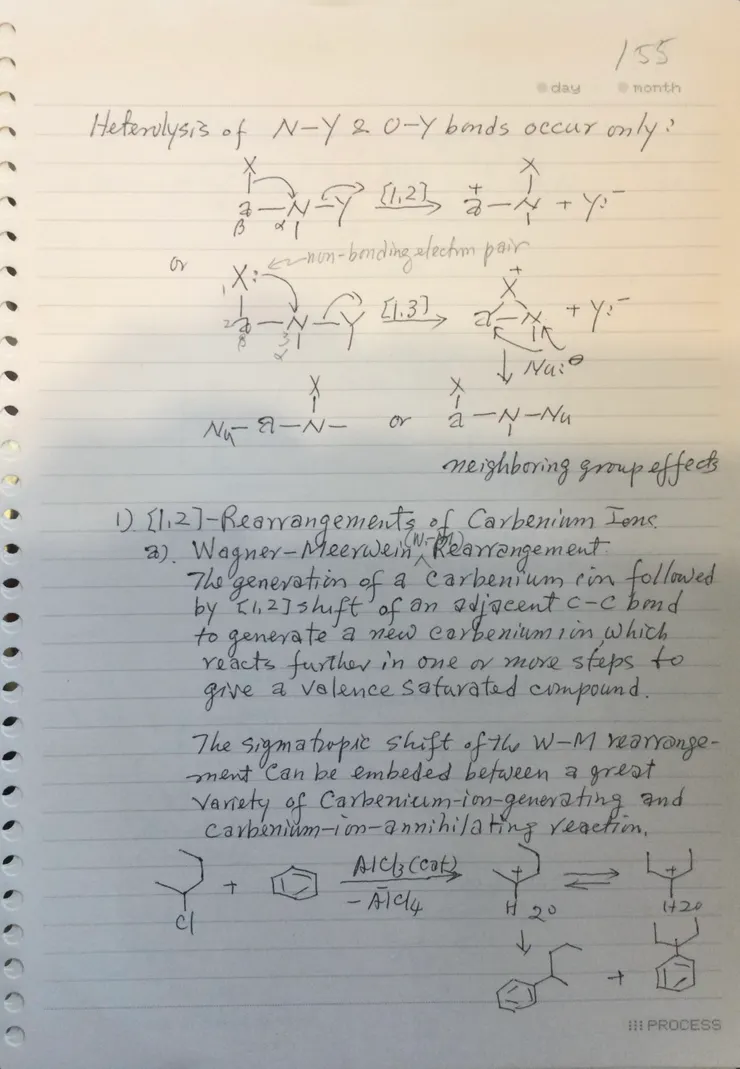 155
day month
Heterolysis of N-Y & O-Y bonds occur only:
X X
a-N-Y [1,2] a+-N + Y:-
β α
or non-bonding electron pair
1 X: X+
2 a-N-Y [1,3] a-N + Y:-
β 3 α
Nu:⊖
X X
Nu-a-N- or a-N-Nu
neighboring group effects
1) [1,2]-Rearrangements of Carbenium Ions.
a). Wagner-Meerwein (W-M) Rearrangement.
The generation of a carbenium ion followed
by [1,2] shift of an adjacent C-C bond
to generate a new carbenium ion, which
reacts further in one or more steps to
give a valence saturated compound.
The sigmatropic shift of the W-M rearrange-
ment can be embeded between a great
variety of carbenium-ion-generating and
carbenium-ion-annihilating reaction.
+ AlCl3 (cat) + +
Cl - AlCl4 H 2° H 2°
+
PROCESS